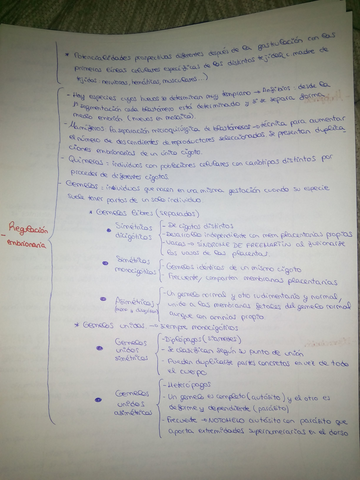 • Potencialidades prospectivas diferentes después de la gastrulación con las
primeras líneas celulares específicas de los distintos tejidos (c. madre de
tejidos neuronas, hemáticas, musculares...)
- Hay especies cuyos huevos lo determinan muy temprano → Anfibios: desde la
1ª segmentación cada blastómero está determinado y si se separa forma
medio embrión (huevos en mosaico)
- Hamíferos: separación microquirúrgica de blastómeros → técnica para aumentar
el número de descendientes de reproductores seleccionados. Se presentan duplica
ciones embrionarias de un único cigoto
- Quimeras: individuos con poblaciones celulares con cariotipos distintos por
proceder de diferentes cigotos
- Gemelos: individuos que nacen en una misma gestación cuando su especie
suele tener partos de un solo individuo
- Regulación
embrionaria
• Gemelos libres (separados)
• Simétricos
dicigóticos
- De cigotos distintos
- Desarrollo independiente con mem. placentarias propias
- Vacas → SÍNDROME DE FREEMARTIN al fusionarse
los vasos de las placentas
• Simétricos
monocigóticos
- Gemelos idénticos de un mismo cigoto
- Frecuente, comparten membranas placentarias
• Asimétricos
- Un gemelo normal y otro rudimentario y
unido a las membranas fetales del gemelo normal
aunque con amnios propio
* Gemelos unidos → siempre monocigóticos
• Gemelos
unidos
simétricos
- Diplópagos (siameses)
- Se clasifican según su punto de unión
- Pueden duplicarse partes concretas en vez de todo
el cuerpo
• Gemelos
unidos
asimétricos
- Heterópagos
- Un gemelo es completo (autósito) y el otro es
deforme y dependiente (parásito)
- Frecuente → NOTOMELO: autósito con parásito que
aporta extremidades supernumerarias en el dorso